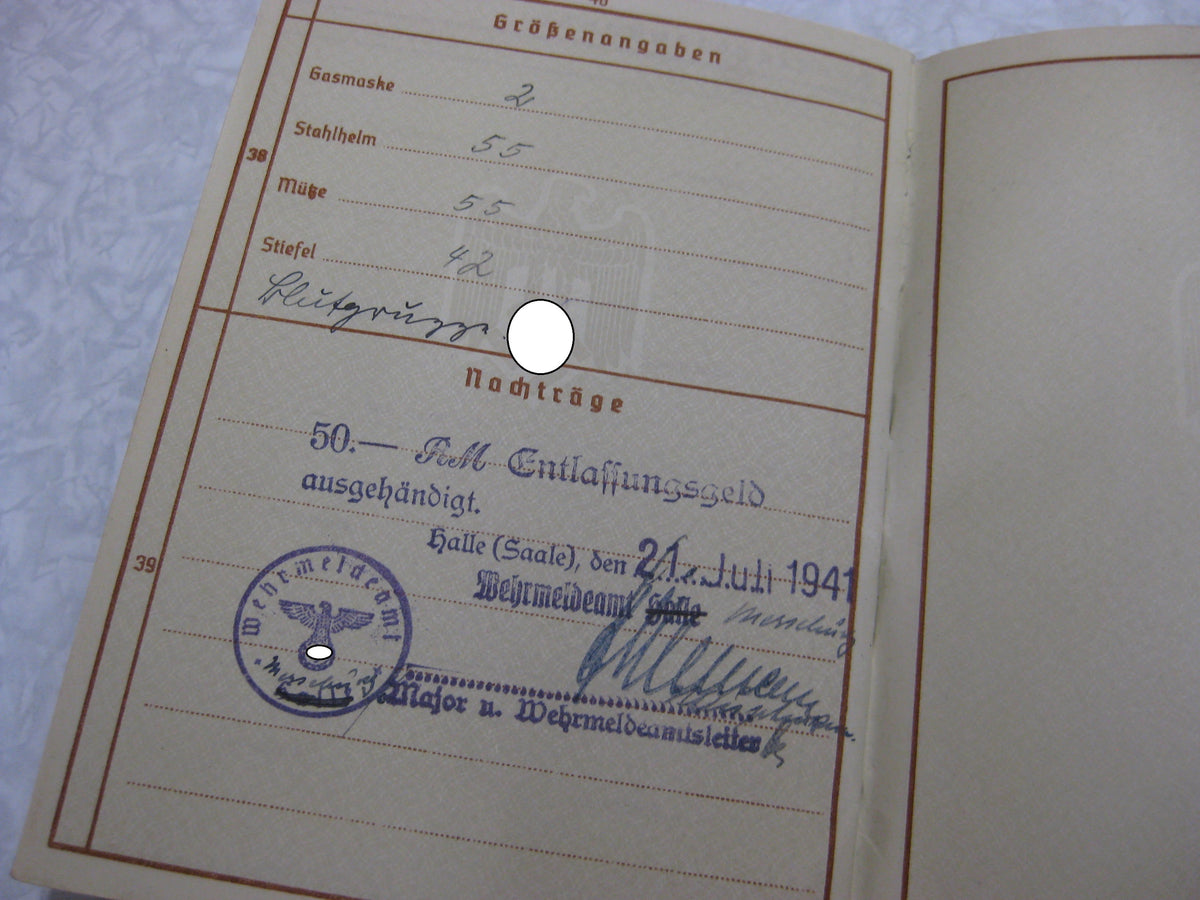 Größenangaben
Gasmaske 2
38
Stahlhelm 55
Mütze 55
Stiefel 42
Blutgruppe
Nachträge
50.— RM Entlassungsgeld
ausgehändigt.
Halle (Saale), den 21. Juli 1941
39
Wehrmeldeamt Halle Merseburg
Wehrmeldeamt
Merseburg
Major u. Wehrmeldeamtsleiter